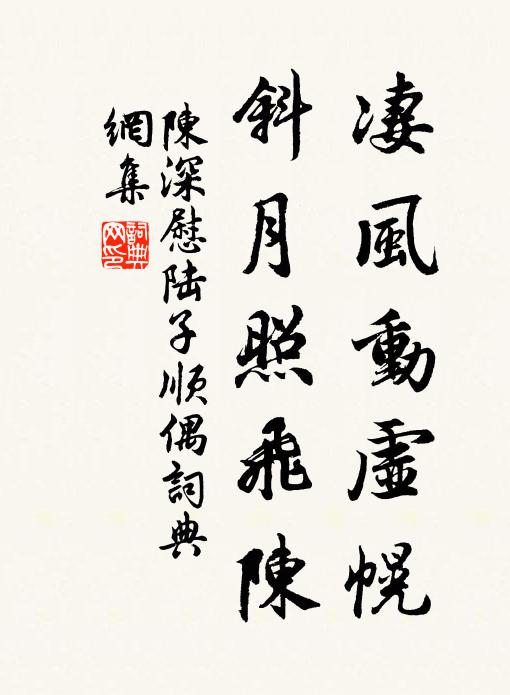 凄風動虛幌
斜月照飛陳
陳深慰陆子順偶詞典
網集
詞典网印